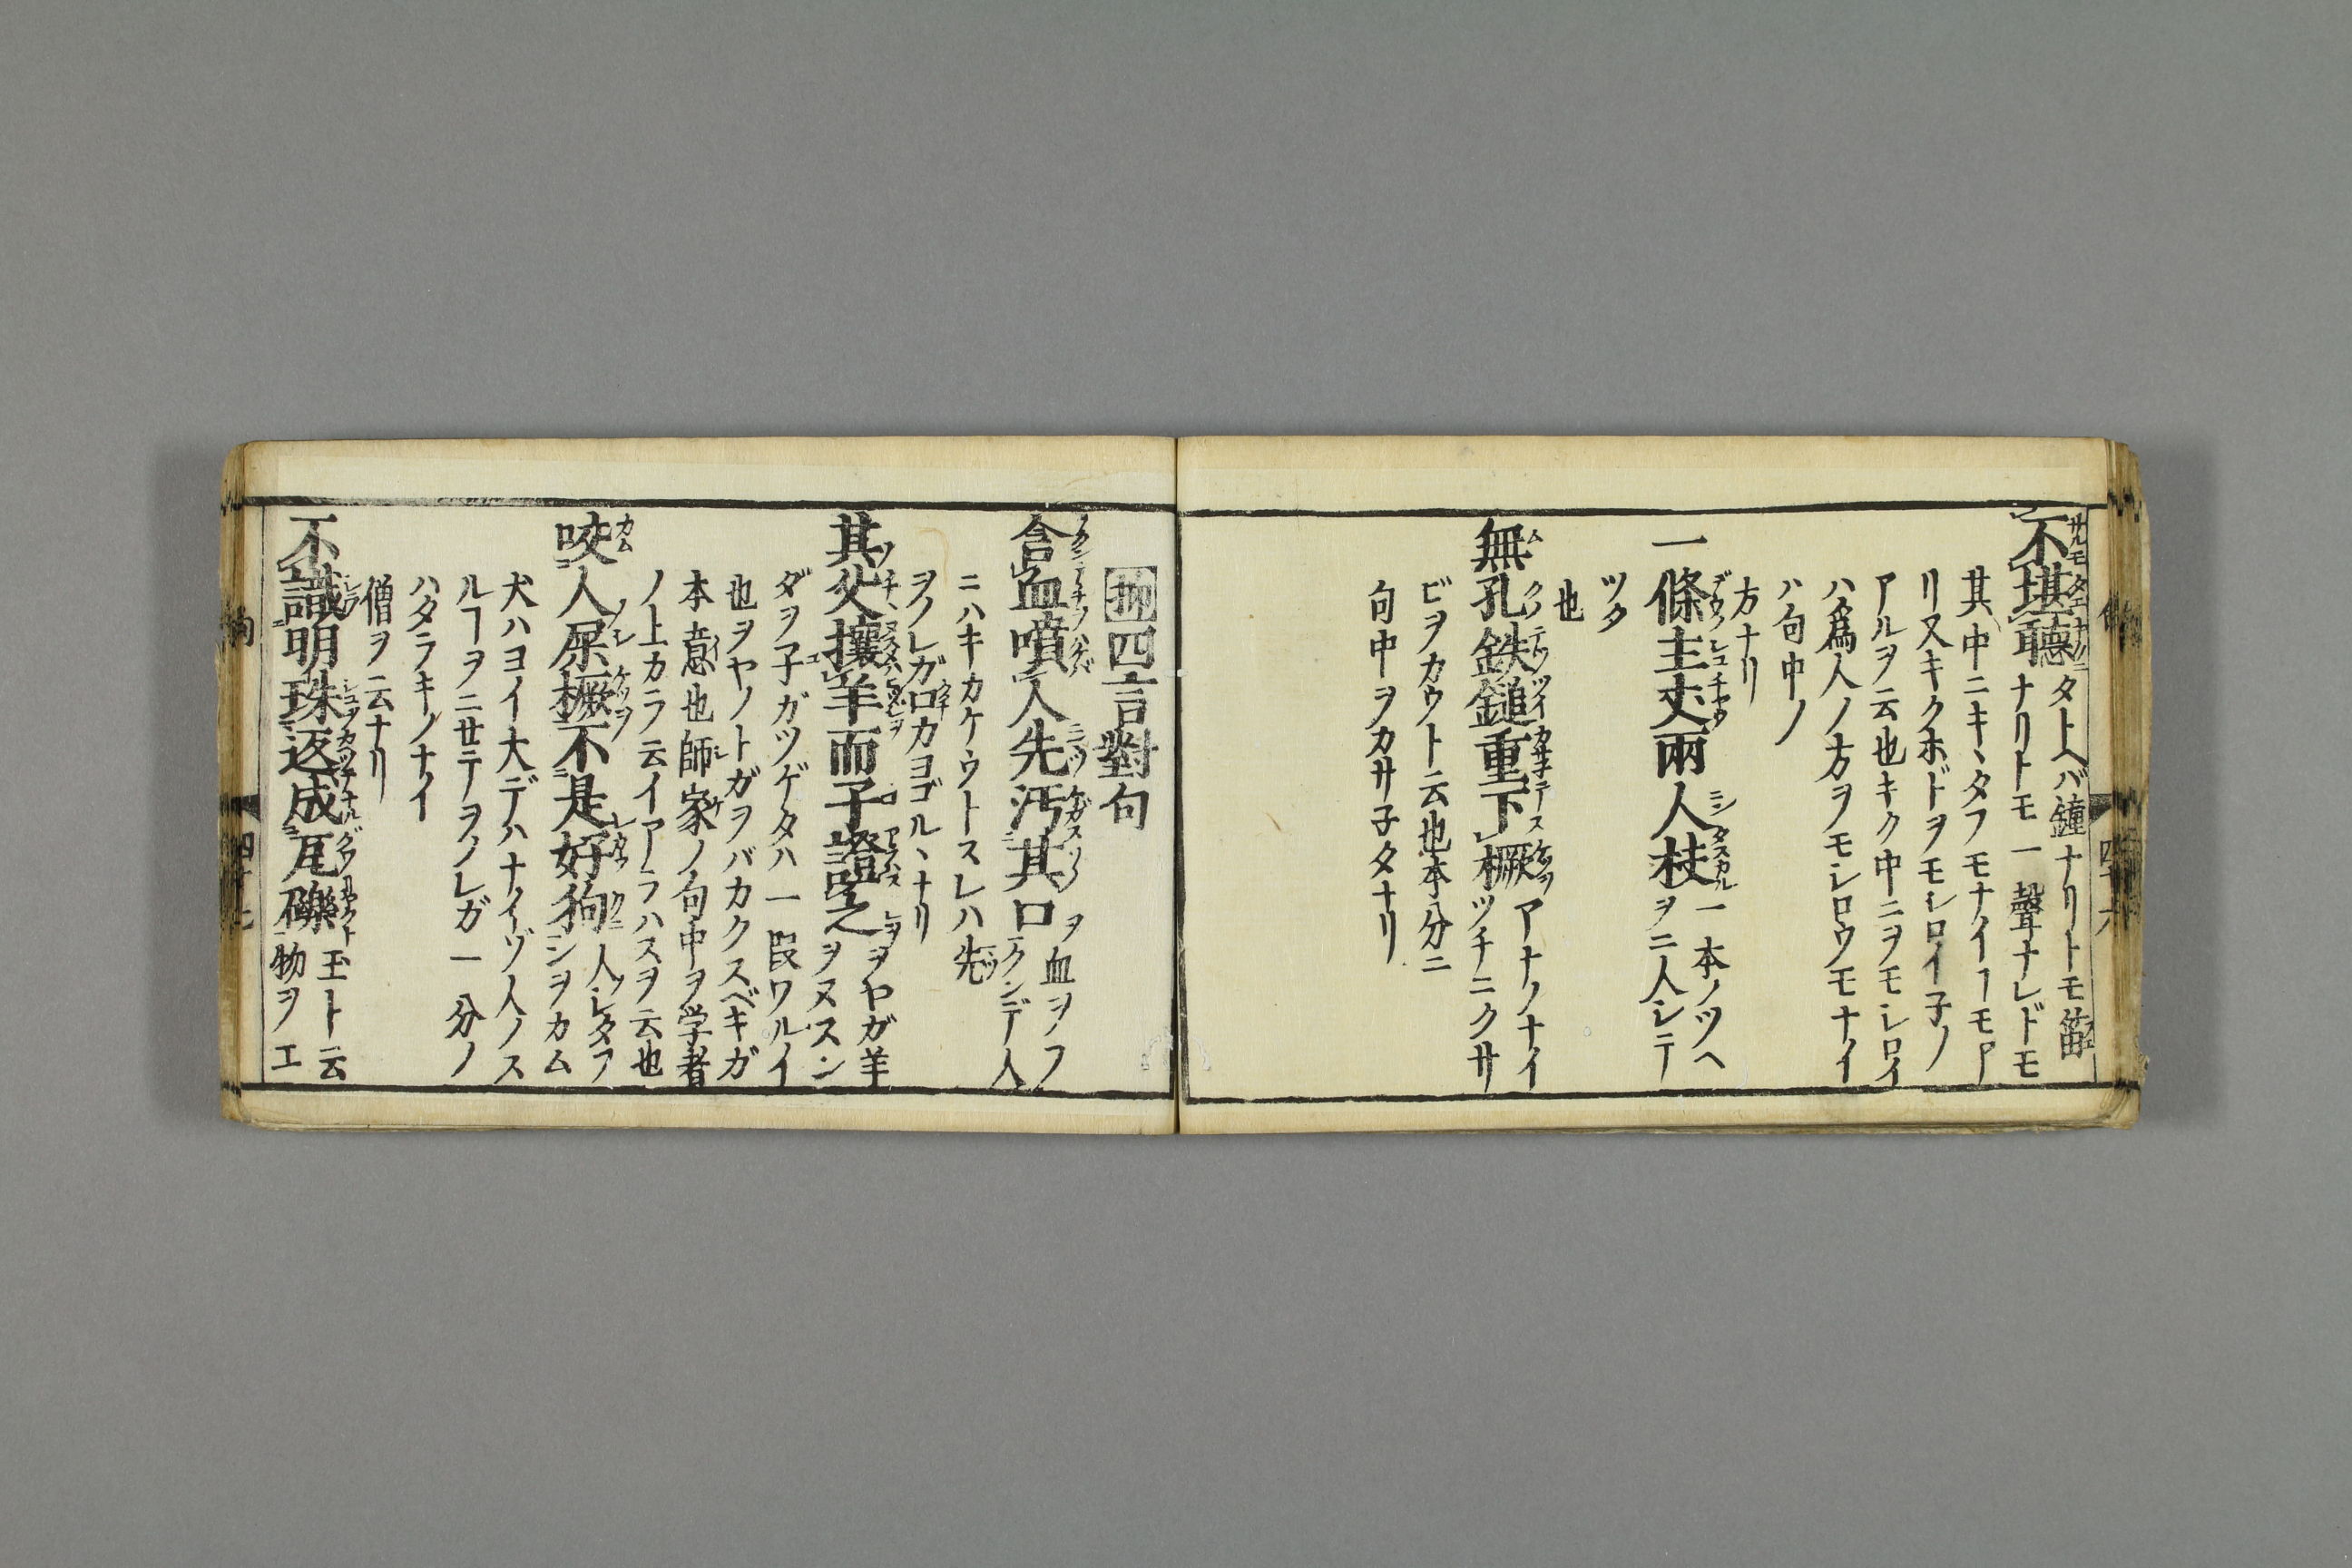 不堪聽 タトヘバ鐘ナリトモ笛
ナリトモ一聲ナレドモ
其中ニキヽタフモナイヿモア
リ又キクホドヲモシロイ子ノ
アルヲ云也キク中ニヲモシロイ
ハ爲人ノ方ヲモシロウモナイ
ハ句中ノ
方ナリ
一條主丈兩人杖 一本ノツヘ
ヲニ人シテ
ツク
也
無孔鉄鎚重下橛 アナノナイ
ツチニクサ
ビヲカウト云也本分ニ
句中ヲカサ子タナリ
四言對句
含血噴人先汚其口 ヲ血ヲノフ
クンデ人
ニハキカケウトスレハ先
ヲノレガ口カヨゴルヽナリ
其父攘羊而子證之 ヲヤガ羊
ヲヌスン
ダヲ子ガツゲタハ一段ワルイ
也ヲヤノトガヲバカクスベキガ
本意也師家ノ句中ヲ学者
ノ上カラ云イアラハスヲ云也
咬人屎橛不是好狗 人ノシタア
シヲカム
犬ハヨイ犬デハナイゾ人ノス
ルヿヲニセテヲノレガ一分ノ
ハタラキノナイ
僧ヲ云ナリ
不識明珠返成瓦礫 玉ト云
物ヲエ
句
四十七
四十六